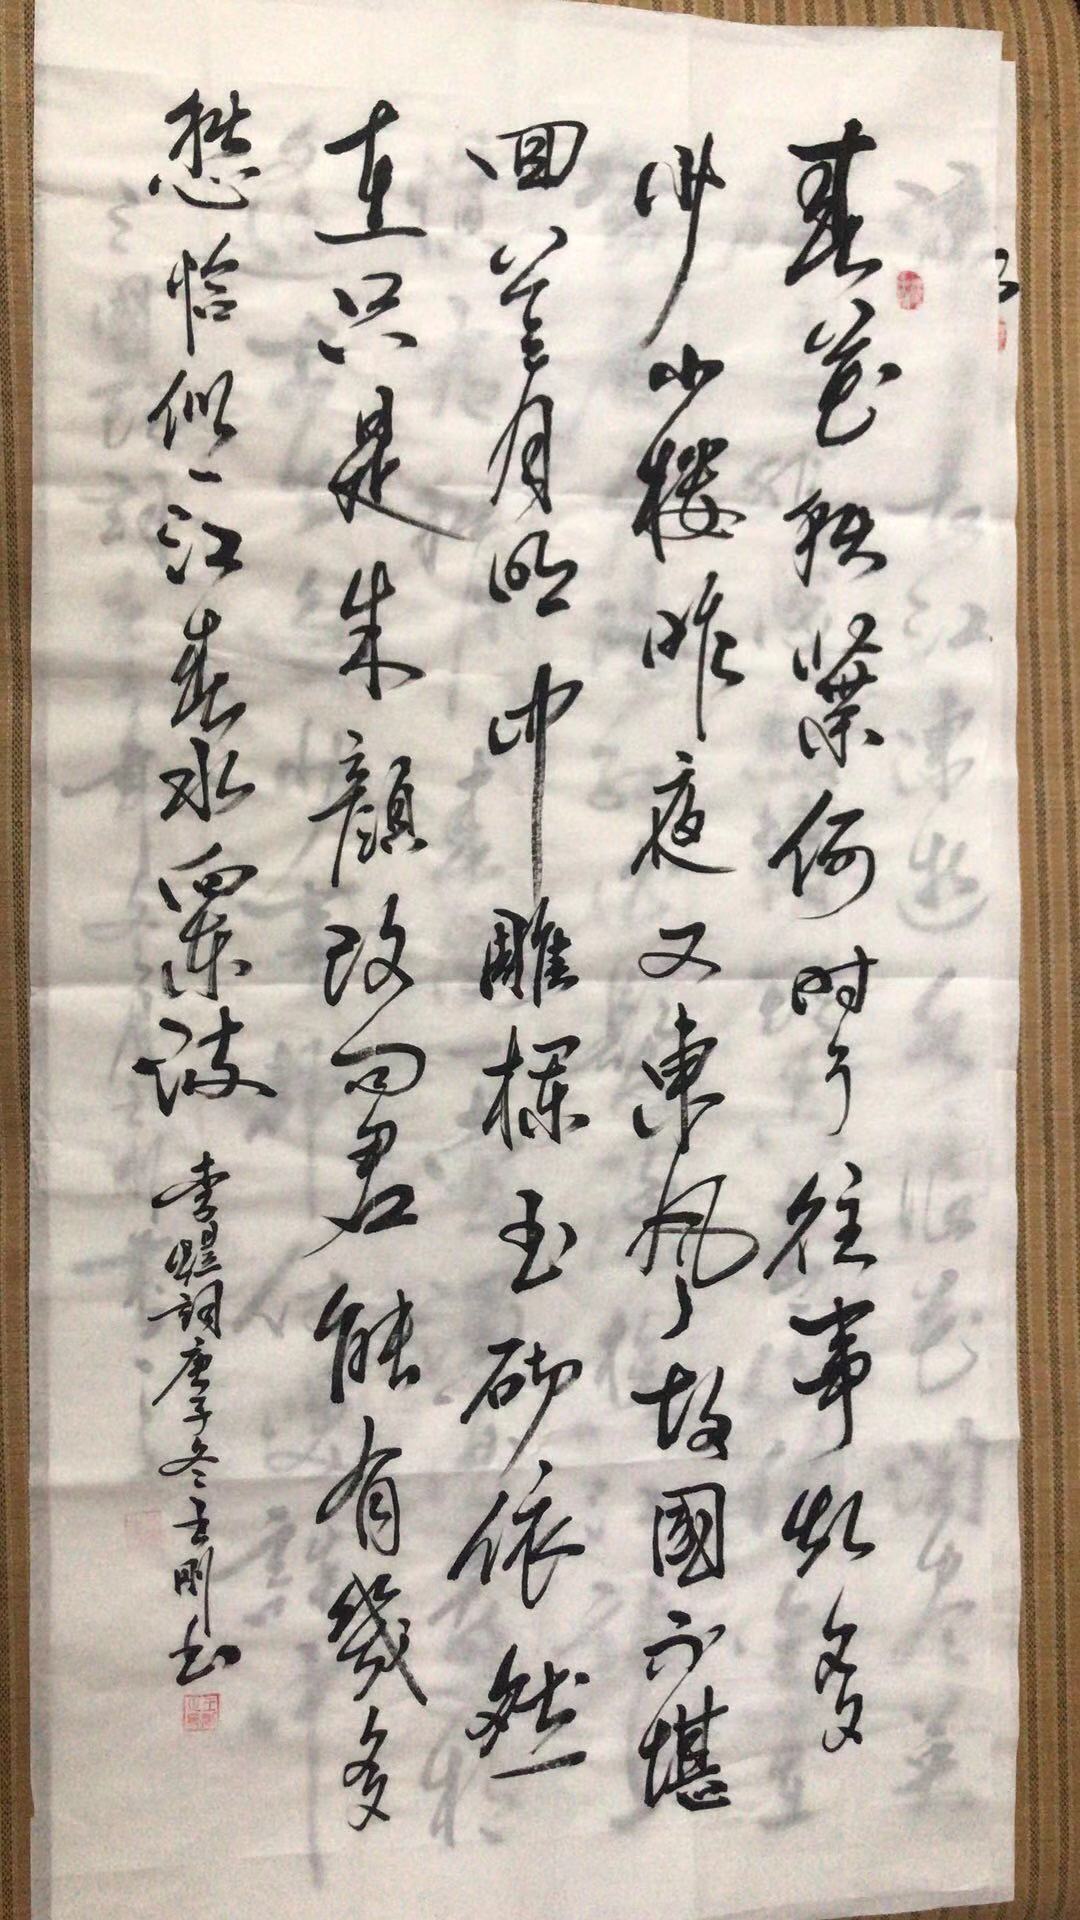 春花秋葉何时了往事知多
少小楼昨夜又東風故國不堪
回首月明中雕欄玉砌依然
在只是朱顔改问君能有幾多
愁恰似一江春水向東流
李煜詞庚子冬 刚书